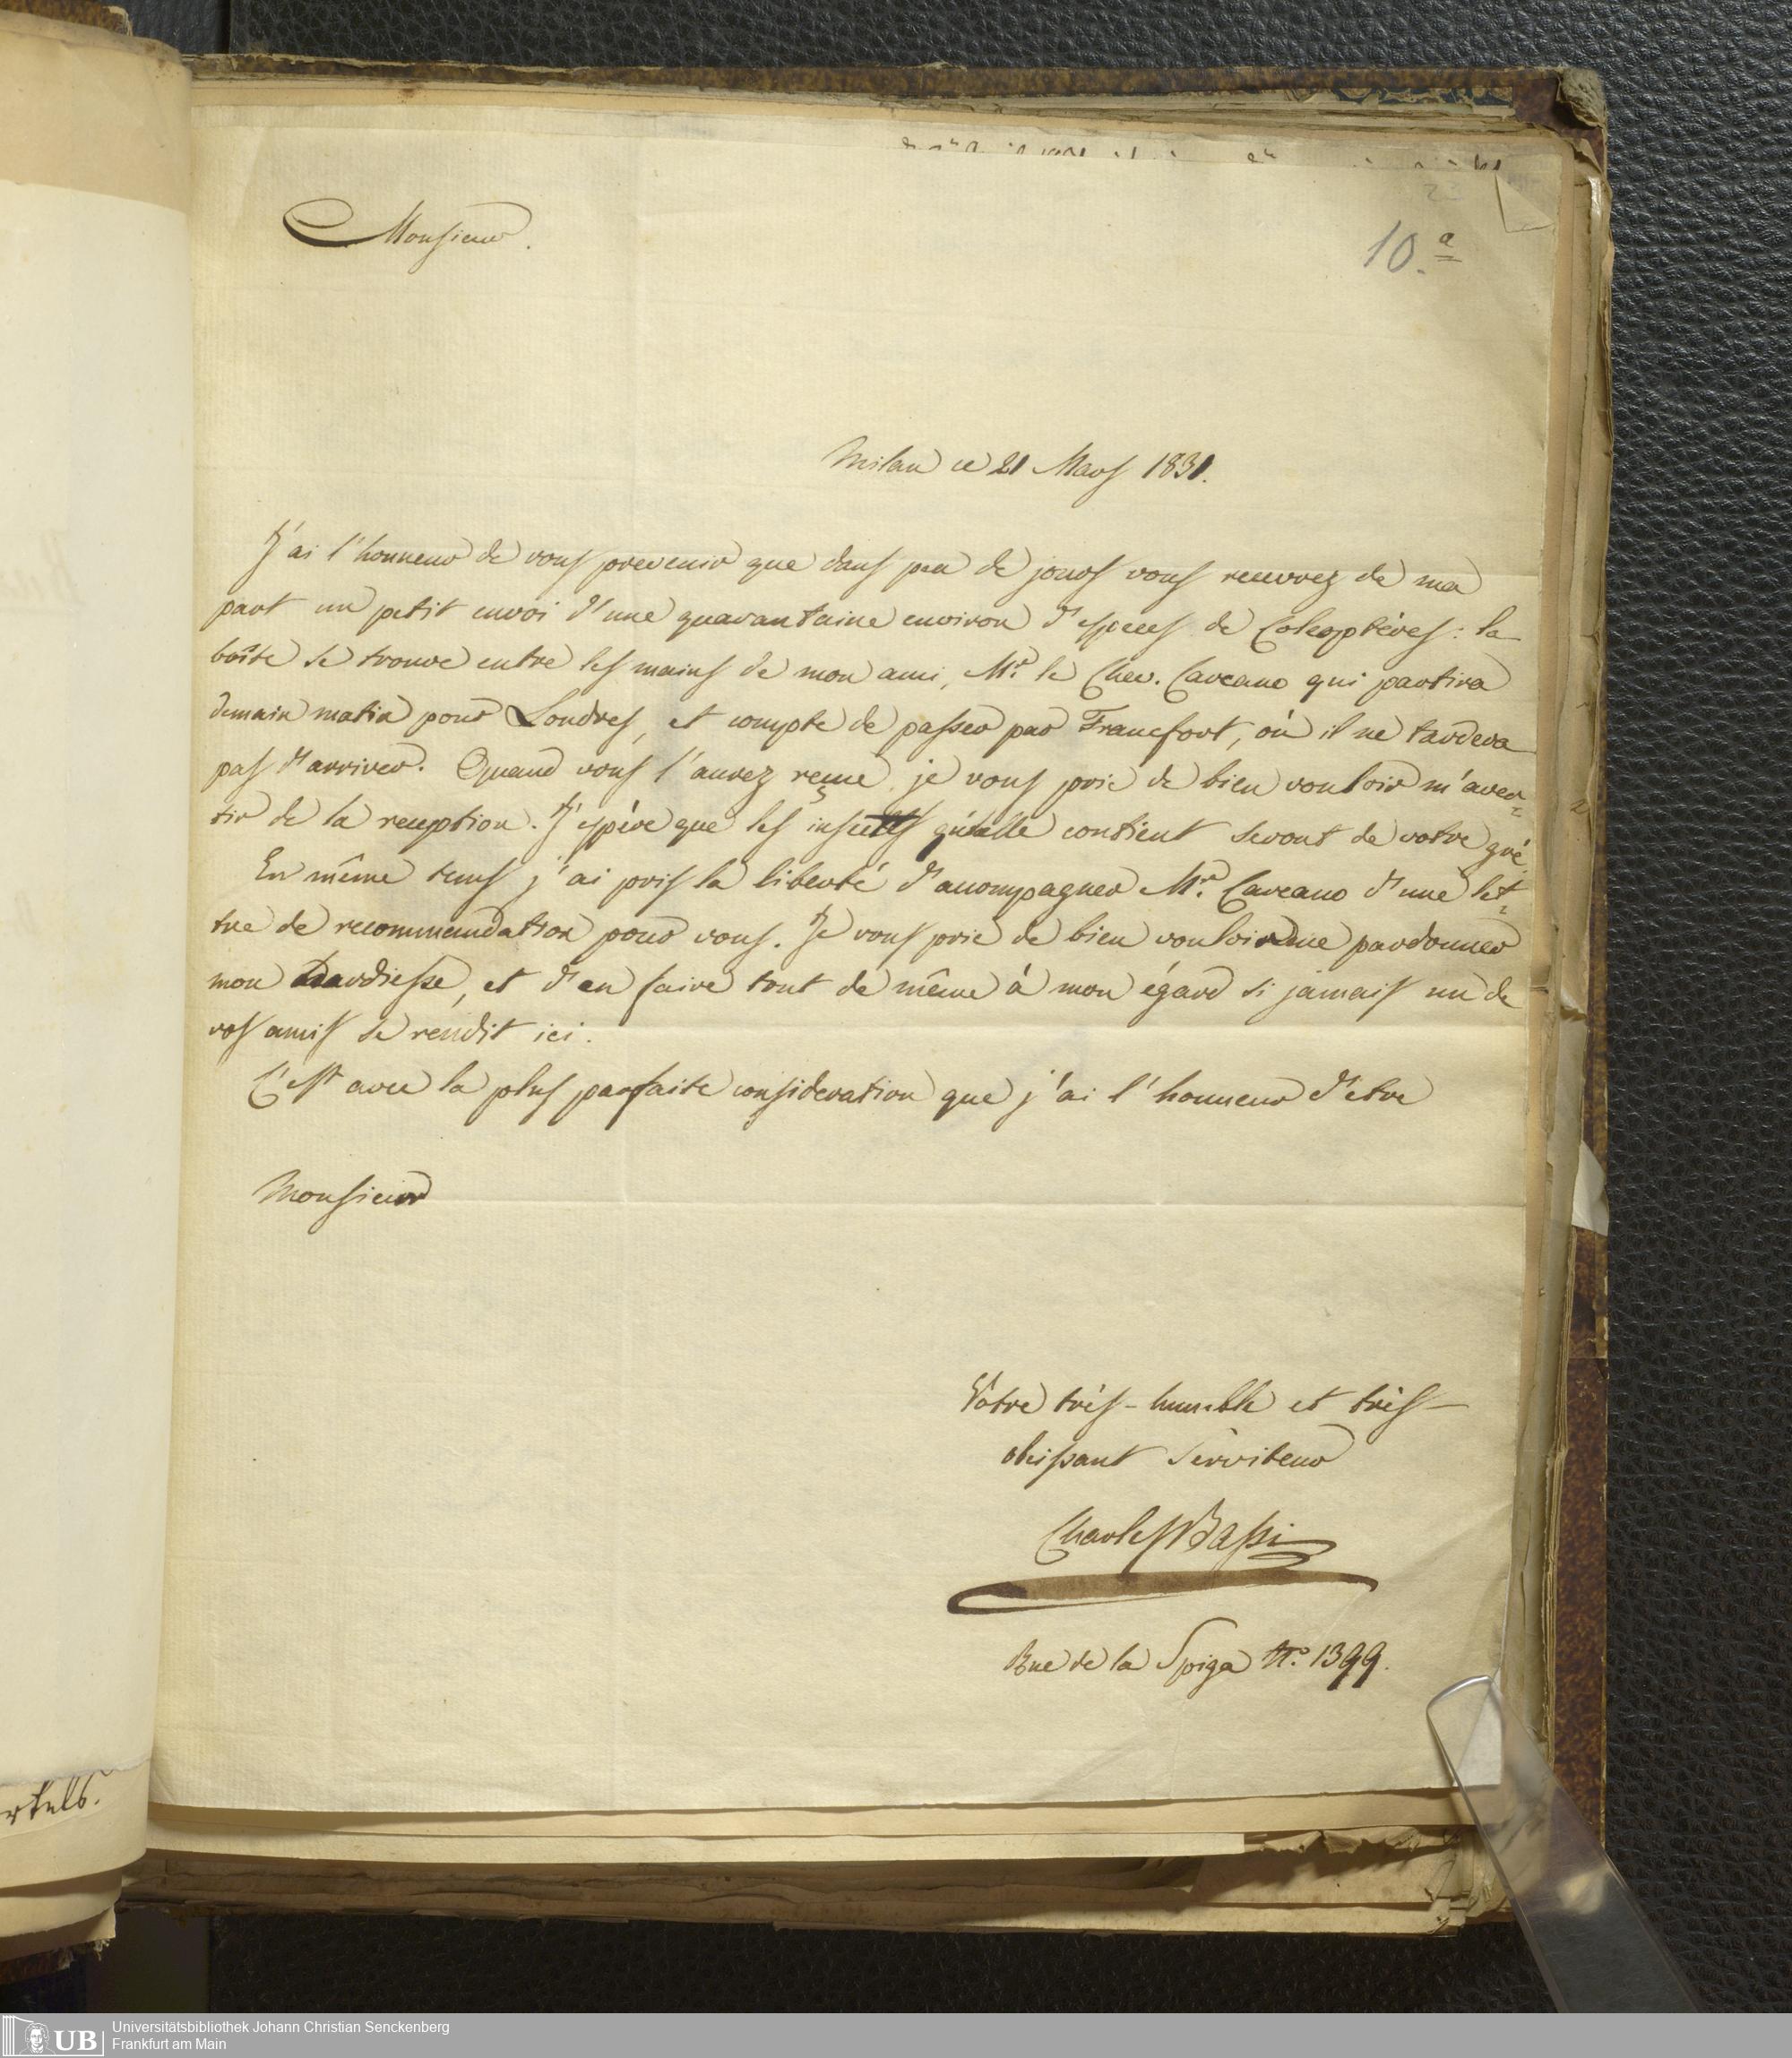 Monsieur.
10.a
Milan ce 21 Mars 1831.
J'ai l'honneur de vous prevenir que dans peu de jours vous recevrez de ma
part un petit envoi d'une quarantaine environ d'especes de Coleoptères: la
boîte se trouve entre les mains de mon ami, Mr. le Chev. Carcano qui partira
demain matin pour Londres, et compte de passer par Francfort, où il ne tardera
pas d'arriver. Quand vous l'aurez reçue je vous prie de bien vouloir m'aver=
tir de la reception. J'espère que les insectes qu'elle contient seront de votre gré.
En même tems j'ai pris la liberté d'accompagner Mr. Carcano d'une let=
tre de recommendation pour vous. Je vous prie de bien vouloir me pardonner
mon hardiesse, et d'en faire tout de même à mon égard si jamais un de
vos amis se rendit ici.
C'est avec la plus parfaite consideration que j'ai l'honneur d'etre
Monsieur
Vôtre très-humble et très-
obeissant serviteur
Charles Bassi
Rue de la Spiga N.° 1399.
rtels.
UB Universitätsbibliothek Johann Christian Senckenberg
Frankfurt am Main